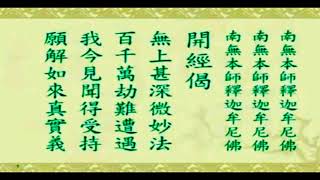 南無本師釋迦牟尼佛
南無本師釋迦牟尼佛
南無本師釋迦牟尼佛
開經偈
無上甚深微妙法
百千萬劫難遭遇
我今見聞得受持
願解如來真實義